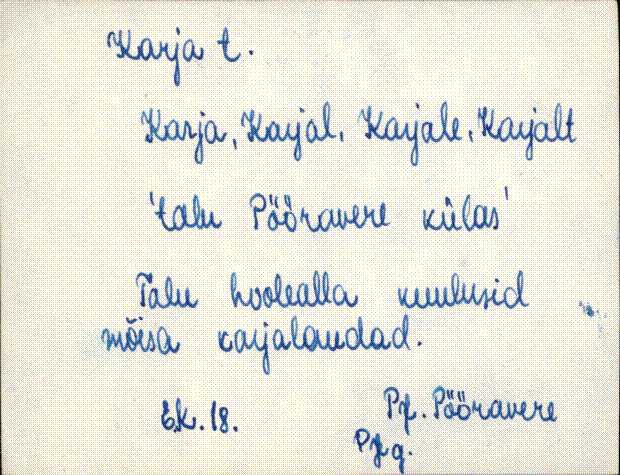 Karja t.
Karja, Karjal, Karjale, Karjalt
'talu Pööravere külas'
Talu hoolealla kuulusid
mõisa karjalaudad.
EK. 18. Pf. Pööravere